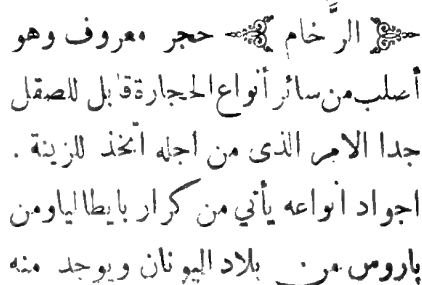 ﴿ الرَّخام ﴾ حجر معروف وهو
أصلب من سائر أنواع الحجارة قابل للصقل
جدا الامر الذى من اجله اتخذ للزينة .
اجواد انواعه يأتي من كرار بايطاليا ومن
باروس من بلاد اليونان ويوجد منه